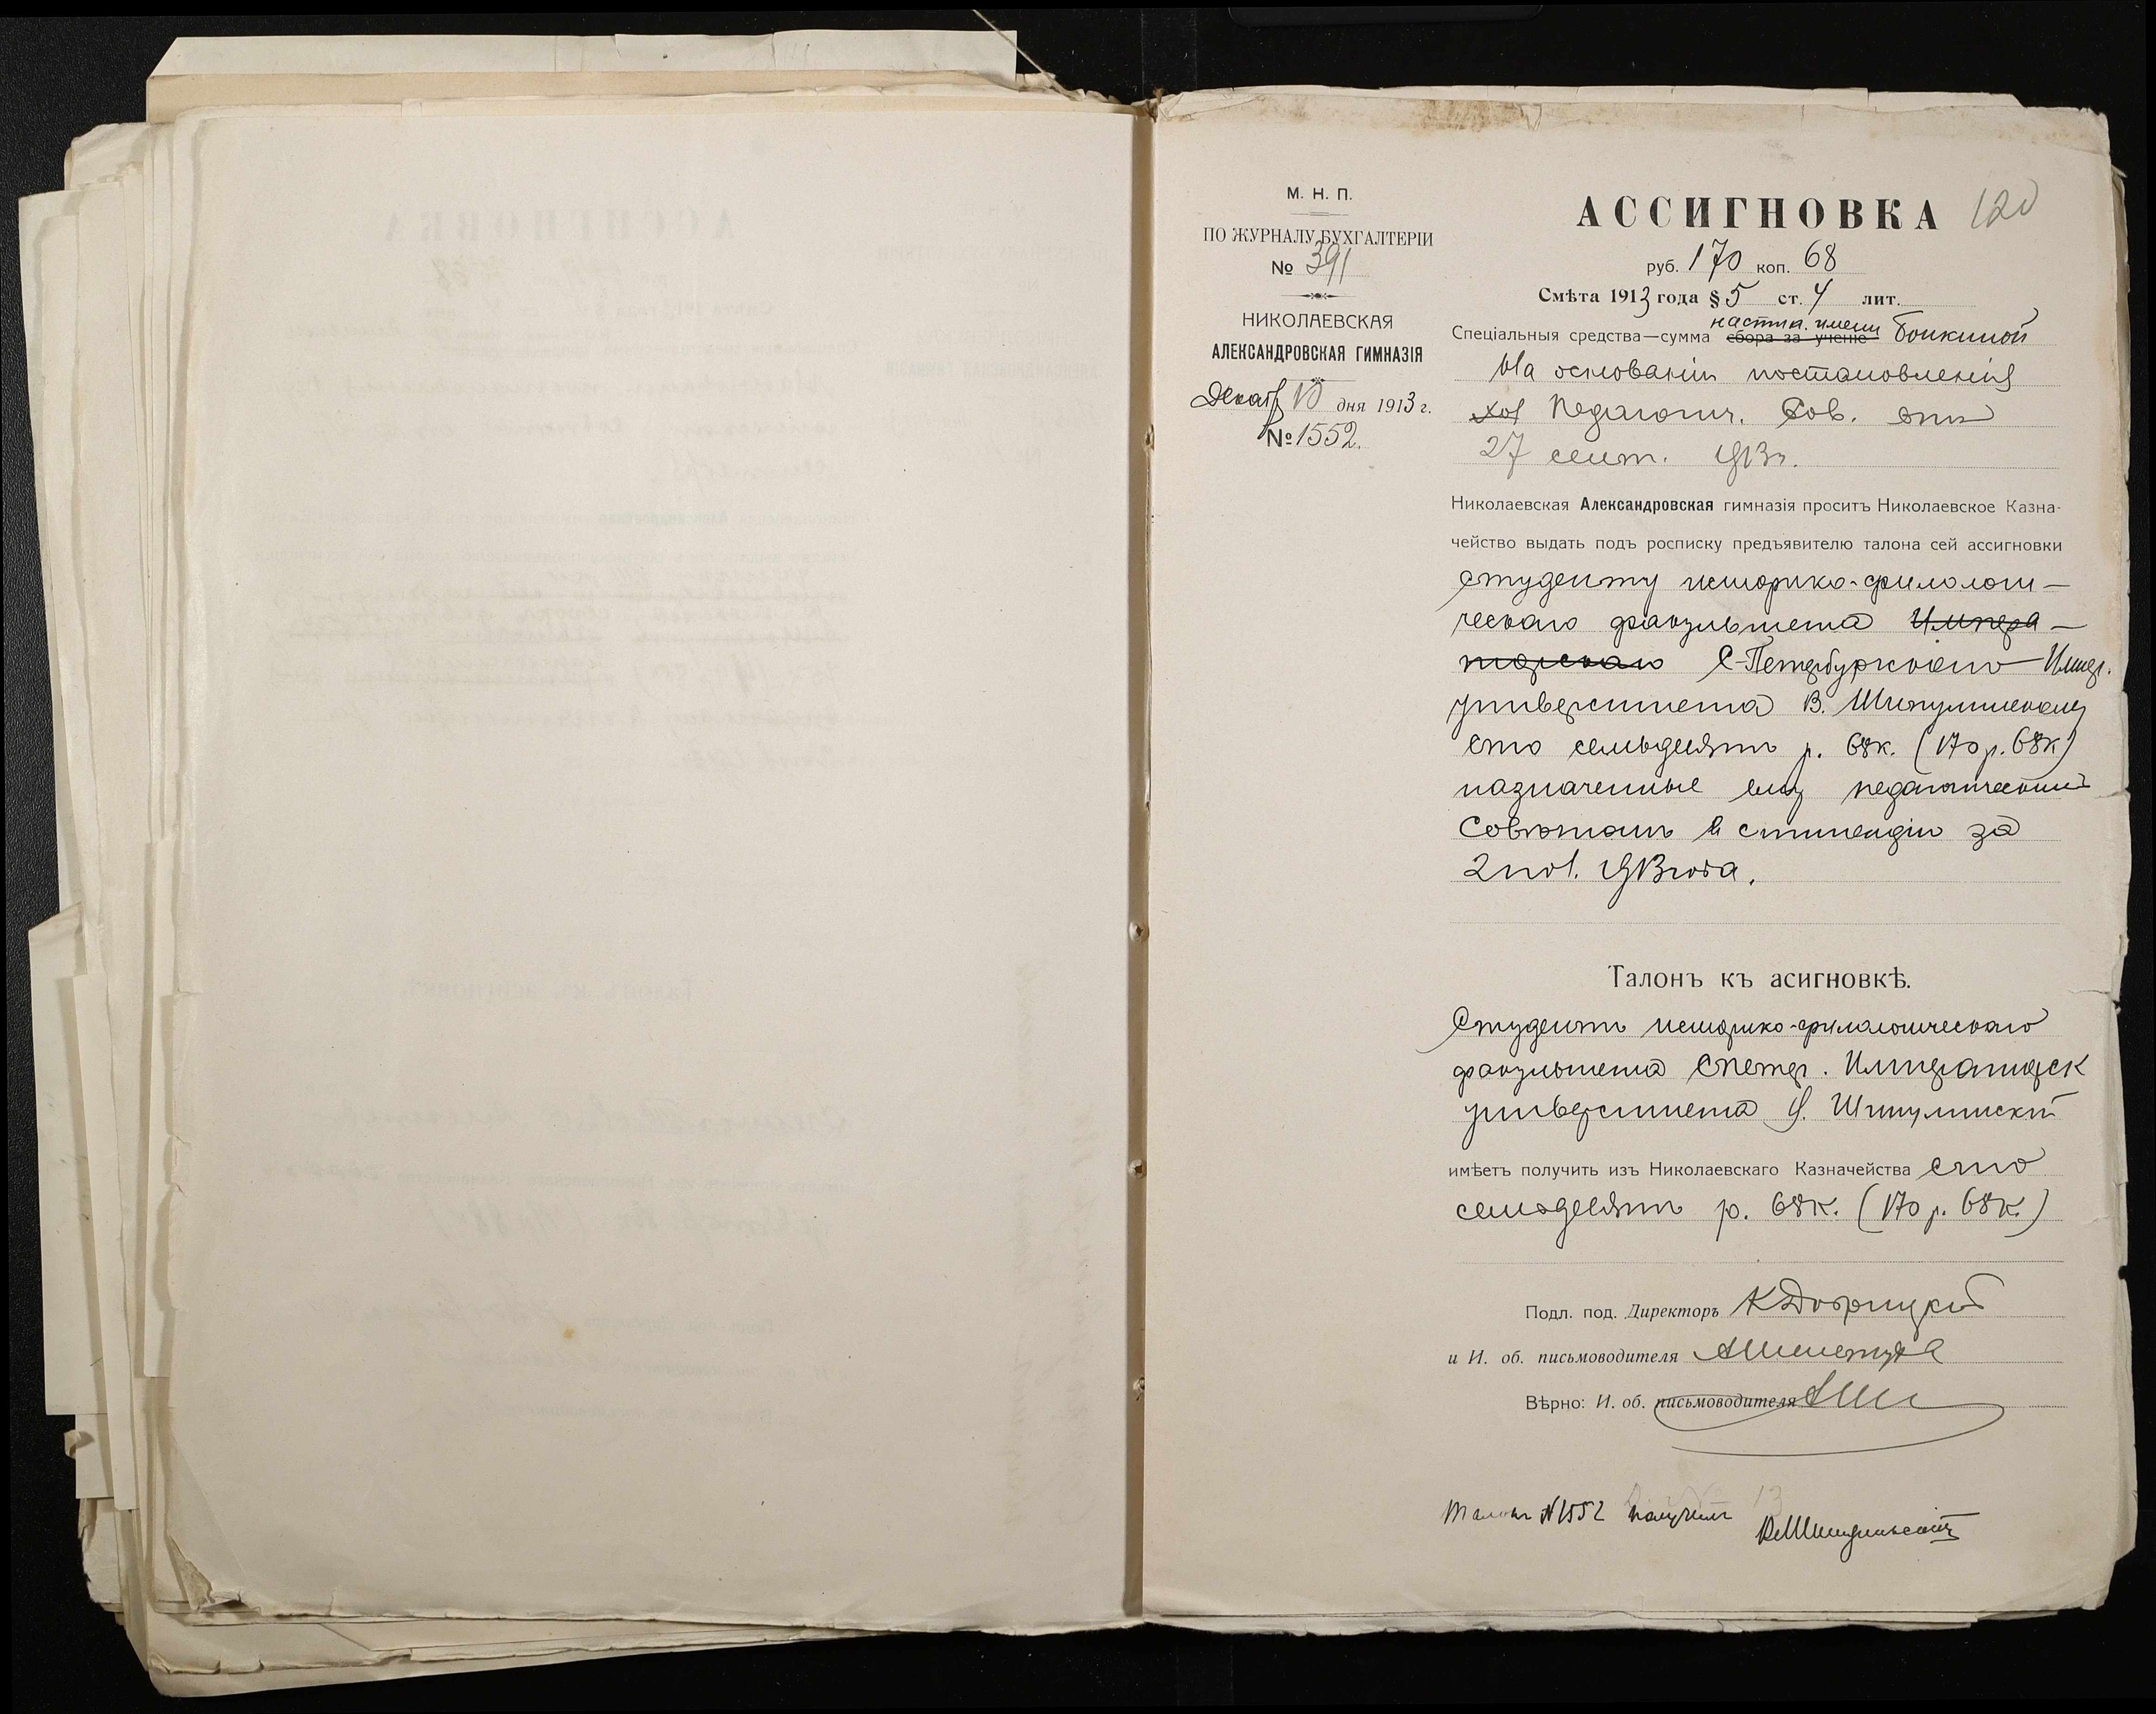 М. Н. П.
ПО ЖУРНАЛУ БУХГАЛТЕРІИ
№ 391
НИКОЛАЕВСКАЯ
АЛЕКСАНДРОВСКАЯ ГИМНАЗІЯ
Декаб 10 дня 1913 г.
№ 1552.
АССИГНОВКА 120
руб. 170 коп. 68
Смѣта 1913 года § 5 ст. 4 лит.
имени
Спеціальныя средства—сумма сбора за ученіе
На основаніи постановленія
Педагогич. Сов. отъ
27 сент. 1913 г.
Николаевская Александровская гимназія проситъ Николаевское Казна-
чейство выдать подъ росписку предъявителю талона сей ассигновки
студенту историко-филологи-
ческаго факультета Импера-
торскаго С-Петербургскаго Импер.
университета В. Шишулинскому
сто семьдесятъ р. 68 к. (170 р. 68 к)
назначенные ему педагогическимъ
Совѣтомъ въ стипендію за
2 пол. 1913 года.
Талонъ къ асигновкѣ.
Студентъ историко-филологическаго
факультета СПетер. Императорск
университета В. Шишулинскій
имѣетъ получить изъ Николаевскаго Казначейства сто
семьдесятъ р. 68 к. (170 р. 68 к.)
Подл. под. Директоръ К Добрицкій
и И. об. письмоводителя
Вѣрно: И. об. письмоводителя
Талонъ № 1552 получилъ